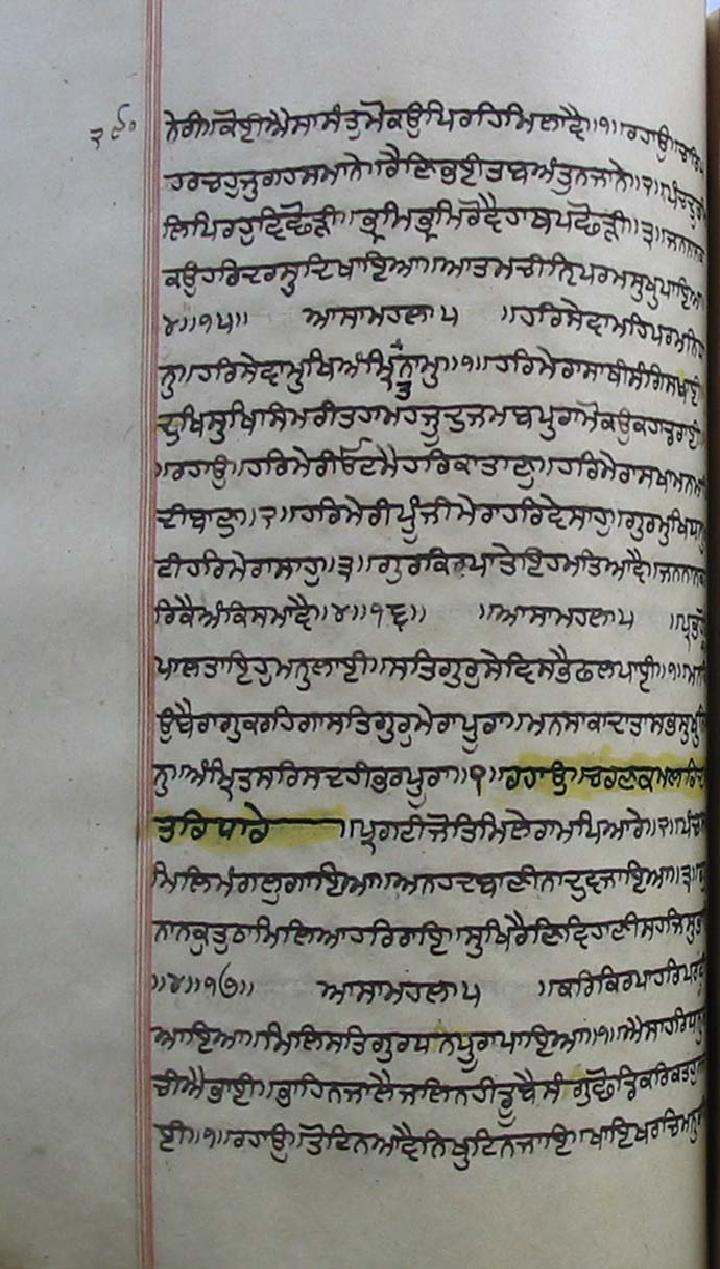 ੨੯੦
ਨੇਰੀ॥ਕੋਈਐਸਾਸੰਤੁਮੋਕਉਪਿਰਹਿਮਿਲਾਵੈ॥੧॥ਰਹਾਉ॥ਚਾਰਿਪ
ਹਰਚਹੁਜੁਗਹਸਮਾਨੇ॥ਰੈਣਿਭਈਤਬਅੰਤੁਨਜਾਨੇ॥੨॥ਪੰਚਦੂਤ
ਮਿਲਿਪਿਰਹੁਵਿਛੋੜੀ॥ਭ੍ਰਮਿਭ੍ਰਮਿਰੋਵੈਹਾਥਪਛੋੜੀ॥੩॥ਜਨਨਾਨਕ
ਕਉਹਰਿਦਰਸੁਦਿਖਾਇਆ॥ਆਤਮਚੀਨਿਪਰਮਸੁਖੁਪਾਇਆ
੪॥੧੫॥ ਆਸਾਮਹਲਾ੫ ॥ਹਰਿਸੇਵਾਮਹਿਪਰਮਨਿਧਾ
ਨੁ॥ਹਰਿਸੇਵਾਮੁਖਿਅੰਮ੍ਰਿਤਨਾਮੁ॥੧॥ਹਰਿਮੇਰਾਸਾਥੀਸੰਗਿਸਖਾਈ
ਦੁਖਿਸੁਖਿਸਿਮਰੀਤਹਾਮਉਜੂਦੁਜਮਬਪੁਰਾਮੋਕਉਕਹਾਡਰਾਈ
॥ਰਹਾਉ॥ਹਰਿਮੇਰੀਓਟਮੈਹਰਿਕਾਤਾਣੁ॥ਹਰਿਮੇਰਾਸਖਾਮਨਮਾ
ਦੀਬਾਣੁ॥੨॥ਹਰਿਮੇਰੀਪੂੰਜੀਮੇਰਾਹਰਿਵੇਸਾਹੁ॥ਗੁਰਮੁਖਿਧਨੁ
ਟੀਹਰਿਮੇਰਾਸਾਹੁ॥੩॥ਗੁਰਕਿਰਪਾਤੇਇਹਮਤਿਆਵੈ॥ਜਨਨਾਨਕੁ
ਰਿਕੈਅੰਕਿਸਮਾਵੈ॥੪॥੧੬॥ ॥ਆਸਾਮਹਲਾ੫ ॥ਪ੍ਰਭੁਹੋ
ਪਾਲਤਾਇਹੁਮਨੁਲਾਈ॥ਸਤਿਗੁਰੁਸੇਵਿਸਭੈਫਲਪਾਈ॥੧॥ਮਨ
ਉਬੈਰਾਗੁਕਰਹਿਗਾਸਤਿਗੁਰੁਮੇਰਾਪੂਰਾ॥ਮਨਸਾਕਾਦਾਤਾਸਭਸੁਖ
ਨੁ॥ਅੰਮ੍ਰਿਤਸਰਿਸਦਹੀਭਰਪੂਰਾ॥੧॥ਰਹਾਉ॥ਚਰਣਕਮਲਰਿਦ
ਤਰਿਧਾਰੇ ॥ਪ੍ਰਗਟੀਜੋਤਿਮਿਲੇਰਾਮਪਿਆਰੇ॥੨॥ਪੰਚਸ
ਮਿਲਿਮੰਗਲੁਗਾਇਆ॥ਅਨਹਦਬਾਣੀਨਾਦੁਵਜਾਇਆ॥੩॥
ਨਾਨਕੁਤੁਠਾਮਿਲਿਆਹਰਿਰਾਇ॥ਸੁਖਿਰੈਣਿਵਿਹਾਣੀਸਹਜਿਸੁਭਾ
॥੪॥੧੭॥ ਆਸਾਮਹਲਾ੫ ॥ਕਰਿਕਿਰਪਾਹਰਿਪਰਗ
ਆਇਆ॥ਮਿਲਿਸਤਿਗੁਰਧਨਪੂਰਾਪਾਇਆ॥੧॥ਐਸਾਹਰਿਧਨੁ
ਚੀਐਭਾਈ॥ਭਾਹਿਨਜਾਲੈਜਲਿਨਹੀਡੂਬੈਸੰਗੁਛੋਡਿਕਰਿਕਤਹੁਨ
ਈ॥੧॥ਰਹਾਉ॥ਤੋਟਿਨਆਵੈਨਿਖੁਟਿਨਜਾਇ॥ਖਾਇਖਰਚਿਮਨੁ